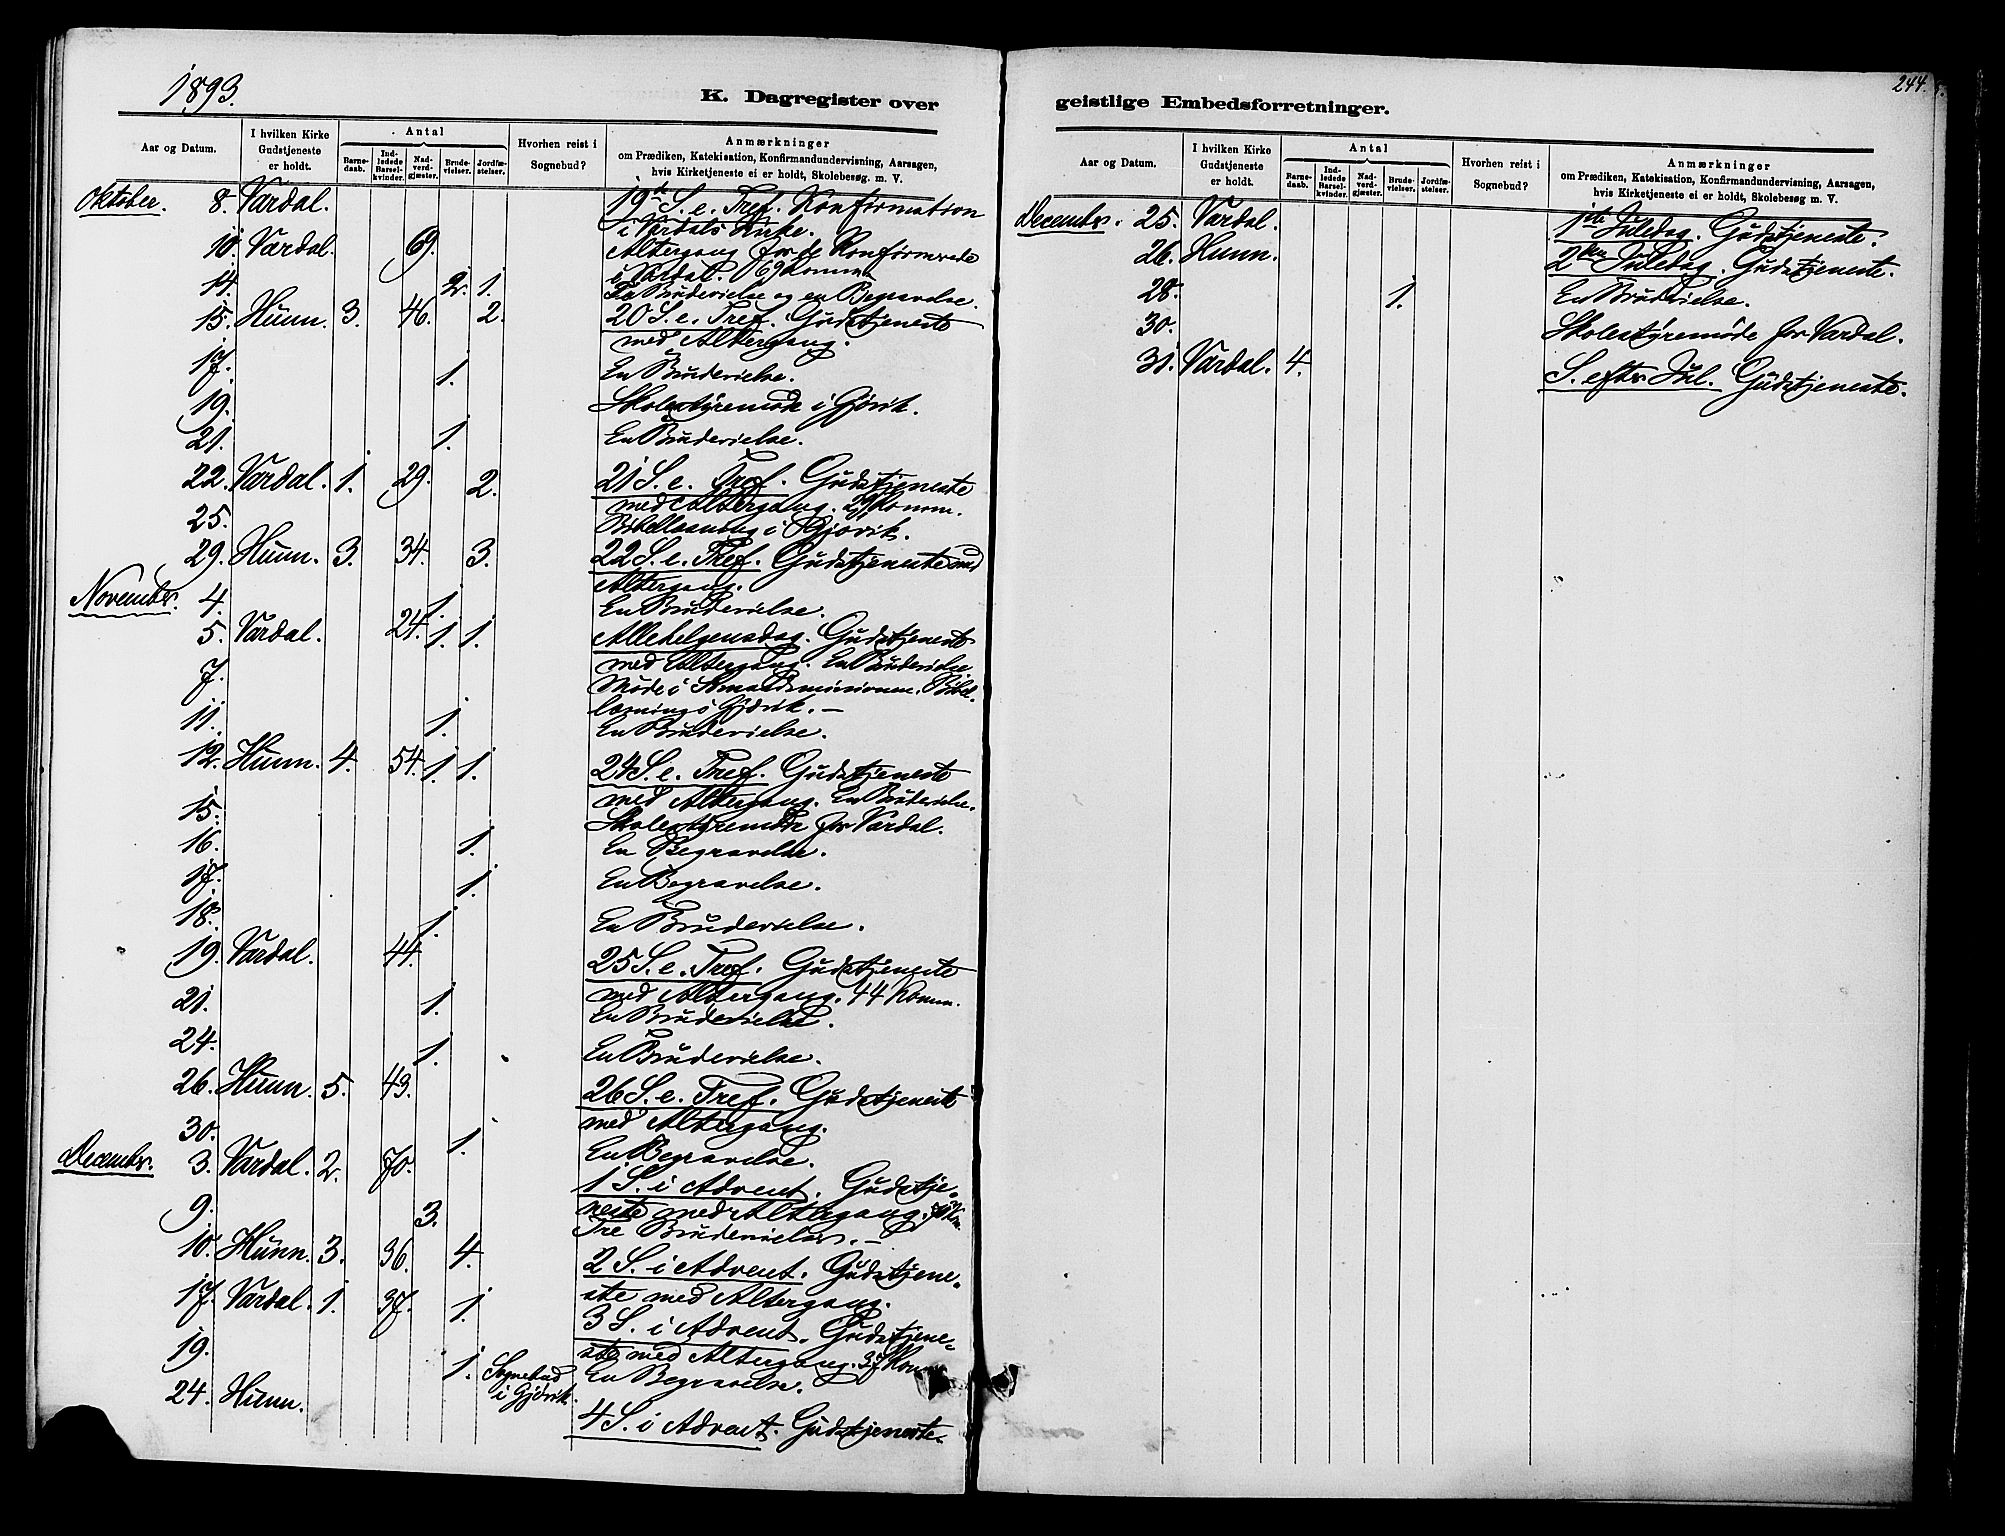 1893.
K. Dagregister over
Aar og Datum.
I hvilken Kirke Gudstjeneste er holdt.
Antal
Barne-daab.
Ind-ledede Barsel-kvinder.
Nad-verd-gjæster.
Brude-vielser.
Jordfæ-stelser.
Hvorhen reist i Sognebud?
Anmærkninger
om Prædiken, Katekisation, Konfirmandundervisning, Aarsagen,
hvis Kirketjeneste ei er holdt, Skolebesøg m. V.
Oktober. 8. Vardal. 19de S. e. Tref. Konfirmation
i Vardals Kirke.
10. Vardal. 69. Altergang for de Konfirmerede
i Vardal. 69 Komm.
14. 2. 1. To Brudevielse og en Begravelse.
15. Hunn. 3. 46. 2. 20 S. e. Tref. Gudstjeneste
med Altergang.
17. 1. En Brudevielse.
19. Skolestyremøde i Gjøvik.
21. 1. En Brudevielse.
22. Vardal. 1. 29. 2. 21 S. e. Tref. Gudstjeneste
med Altergang. 29 Komm.
25. i Gjøvik.
29. Hunn. 3. 34. 3. 22 S. e. Tref. Gudstjeneste med
Altergang.
Novembr. 4. 1. En Brudevielse.
5. Vardal. 24. 1. 1. Allehelgensdag. Gudstjeneste
med Altergang. En Brudevielse
7. Møde i Sømandsmissionen. Bibel-
læsning i Gjøvik. —
11. 1. En Brudevielse.
12. Hunn. 4. 54. 1. 1. 24 S. e. Tref. Gudstjeneste
med Altergang. En Brudevielse.
15. Skolestyremøde for Vardal.
16. 1. En Begravelse.
17. 1. En Begravelse.
18. 1. En Brudevielse.
19. Vardal. 44. 25 S. e. Tref. Gudstjeneste
med Altergang. 44 Komm.
21. 1. En Brudevielse.
24. 1. En Brudevielse.
26. Hunn. 5. 49. 26 S. e. Tref. Gudstjeneste
med Altergang.
30. 1. En Begravelse.
Decembr. 3. Vardal. 2. 70. 1 S. i Advent. Gudstje-
neste med Altergang. 70 Km.
9. 3. Tre Brudevielser. —
10. Hunn. 3. 36. 4. 2 S. i Advent. Gudstjene-
ste med Altergang.
17. Vardal. 1. 37. 1. 3 S. i Advent. Gudstjene-
ste med Altergang. 37 Komm.
19. 1. Sognebud i Gjøvik. En Begravelse.
24. Hunn. 4 S. i Advent. Gudstjeneste.
244.
geistlige Embedsforretninger.
Aar og Datum.
I hvilken Kirke Gudstjeneste er holdt.
Antal
Barne-daab.
Ind-ledede Barsel-kvinder.
Nad-verd-gjæster.
Brude-vielser.
Jordfæ-stelser.
Hvorhen reist i Sognebud?
Anmærkninger
om Prædiken, Katekisation, Konfirmandundervisning, Aarsagen,
hvis Kirketjeneste ei er holdt, Skolebesøg m. V.
Decembr. 25. Vardal. 1ste Juledag. Gudstjeneste.
26. Hunn. 2den Juledag. Gudstjeneste.
28. 1. En Brudevielse.
30. Skolestyremøde for Vardal.
31. Vardal. 4. S. efter Jul. Gudstjeneste.